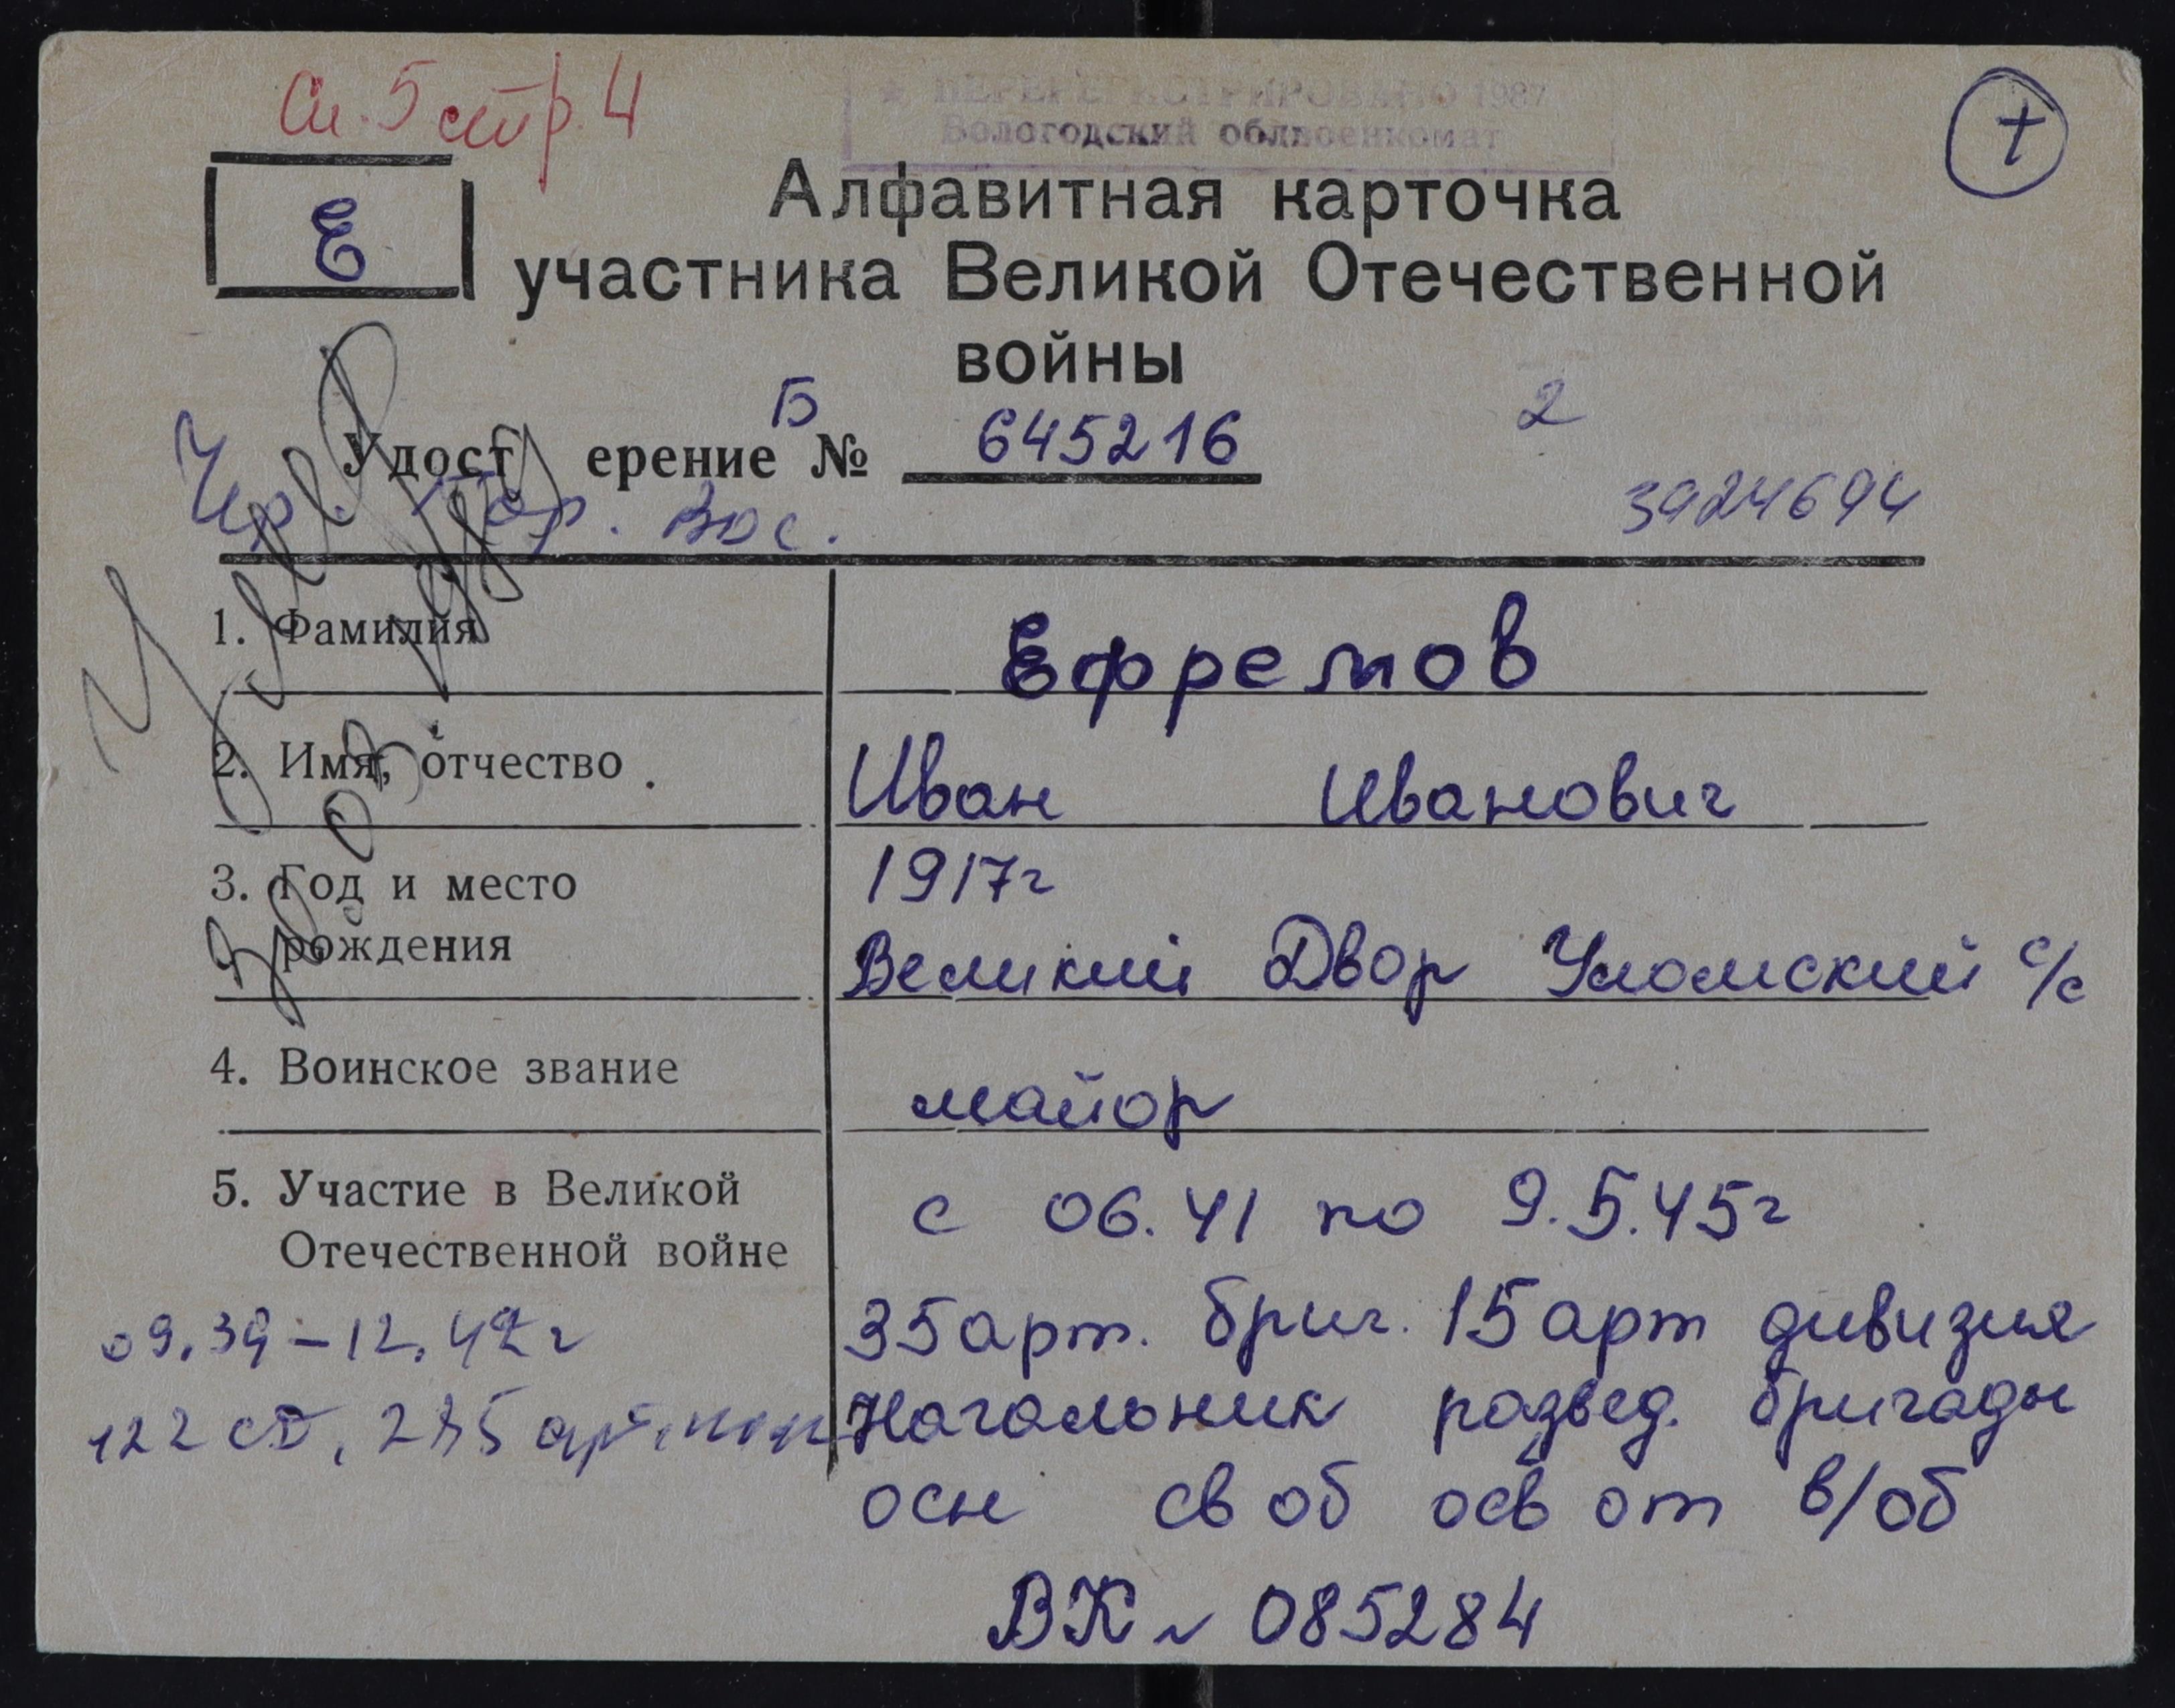 Сп. 5 стр. 4
ПЕРЕРЕГИСТРИРОВАНО 1987
Вологодский облвоенкомат
Е
Алфавитная карточка
участника Великой Отечественной
войны
Б
2
Удост ерение № 645216
3924694
1. Фамилия Ефремов
2. Имя, отчество Иван Иванович
3. Год и место рождения 1917г
Великий Двор Уломский с/с
4. Воинское звание майор
5. Участие в Великой Отечественной войне с 06.41 по 9.5.45г
35 арт. бриг. 15 арт дивизия
Начальник развед. бригады
осн св об осв от в/об
ВК № 085284
09.39 – 12.42г
122 сд,